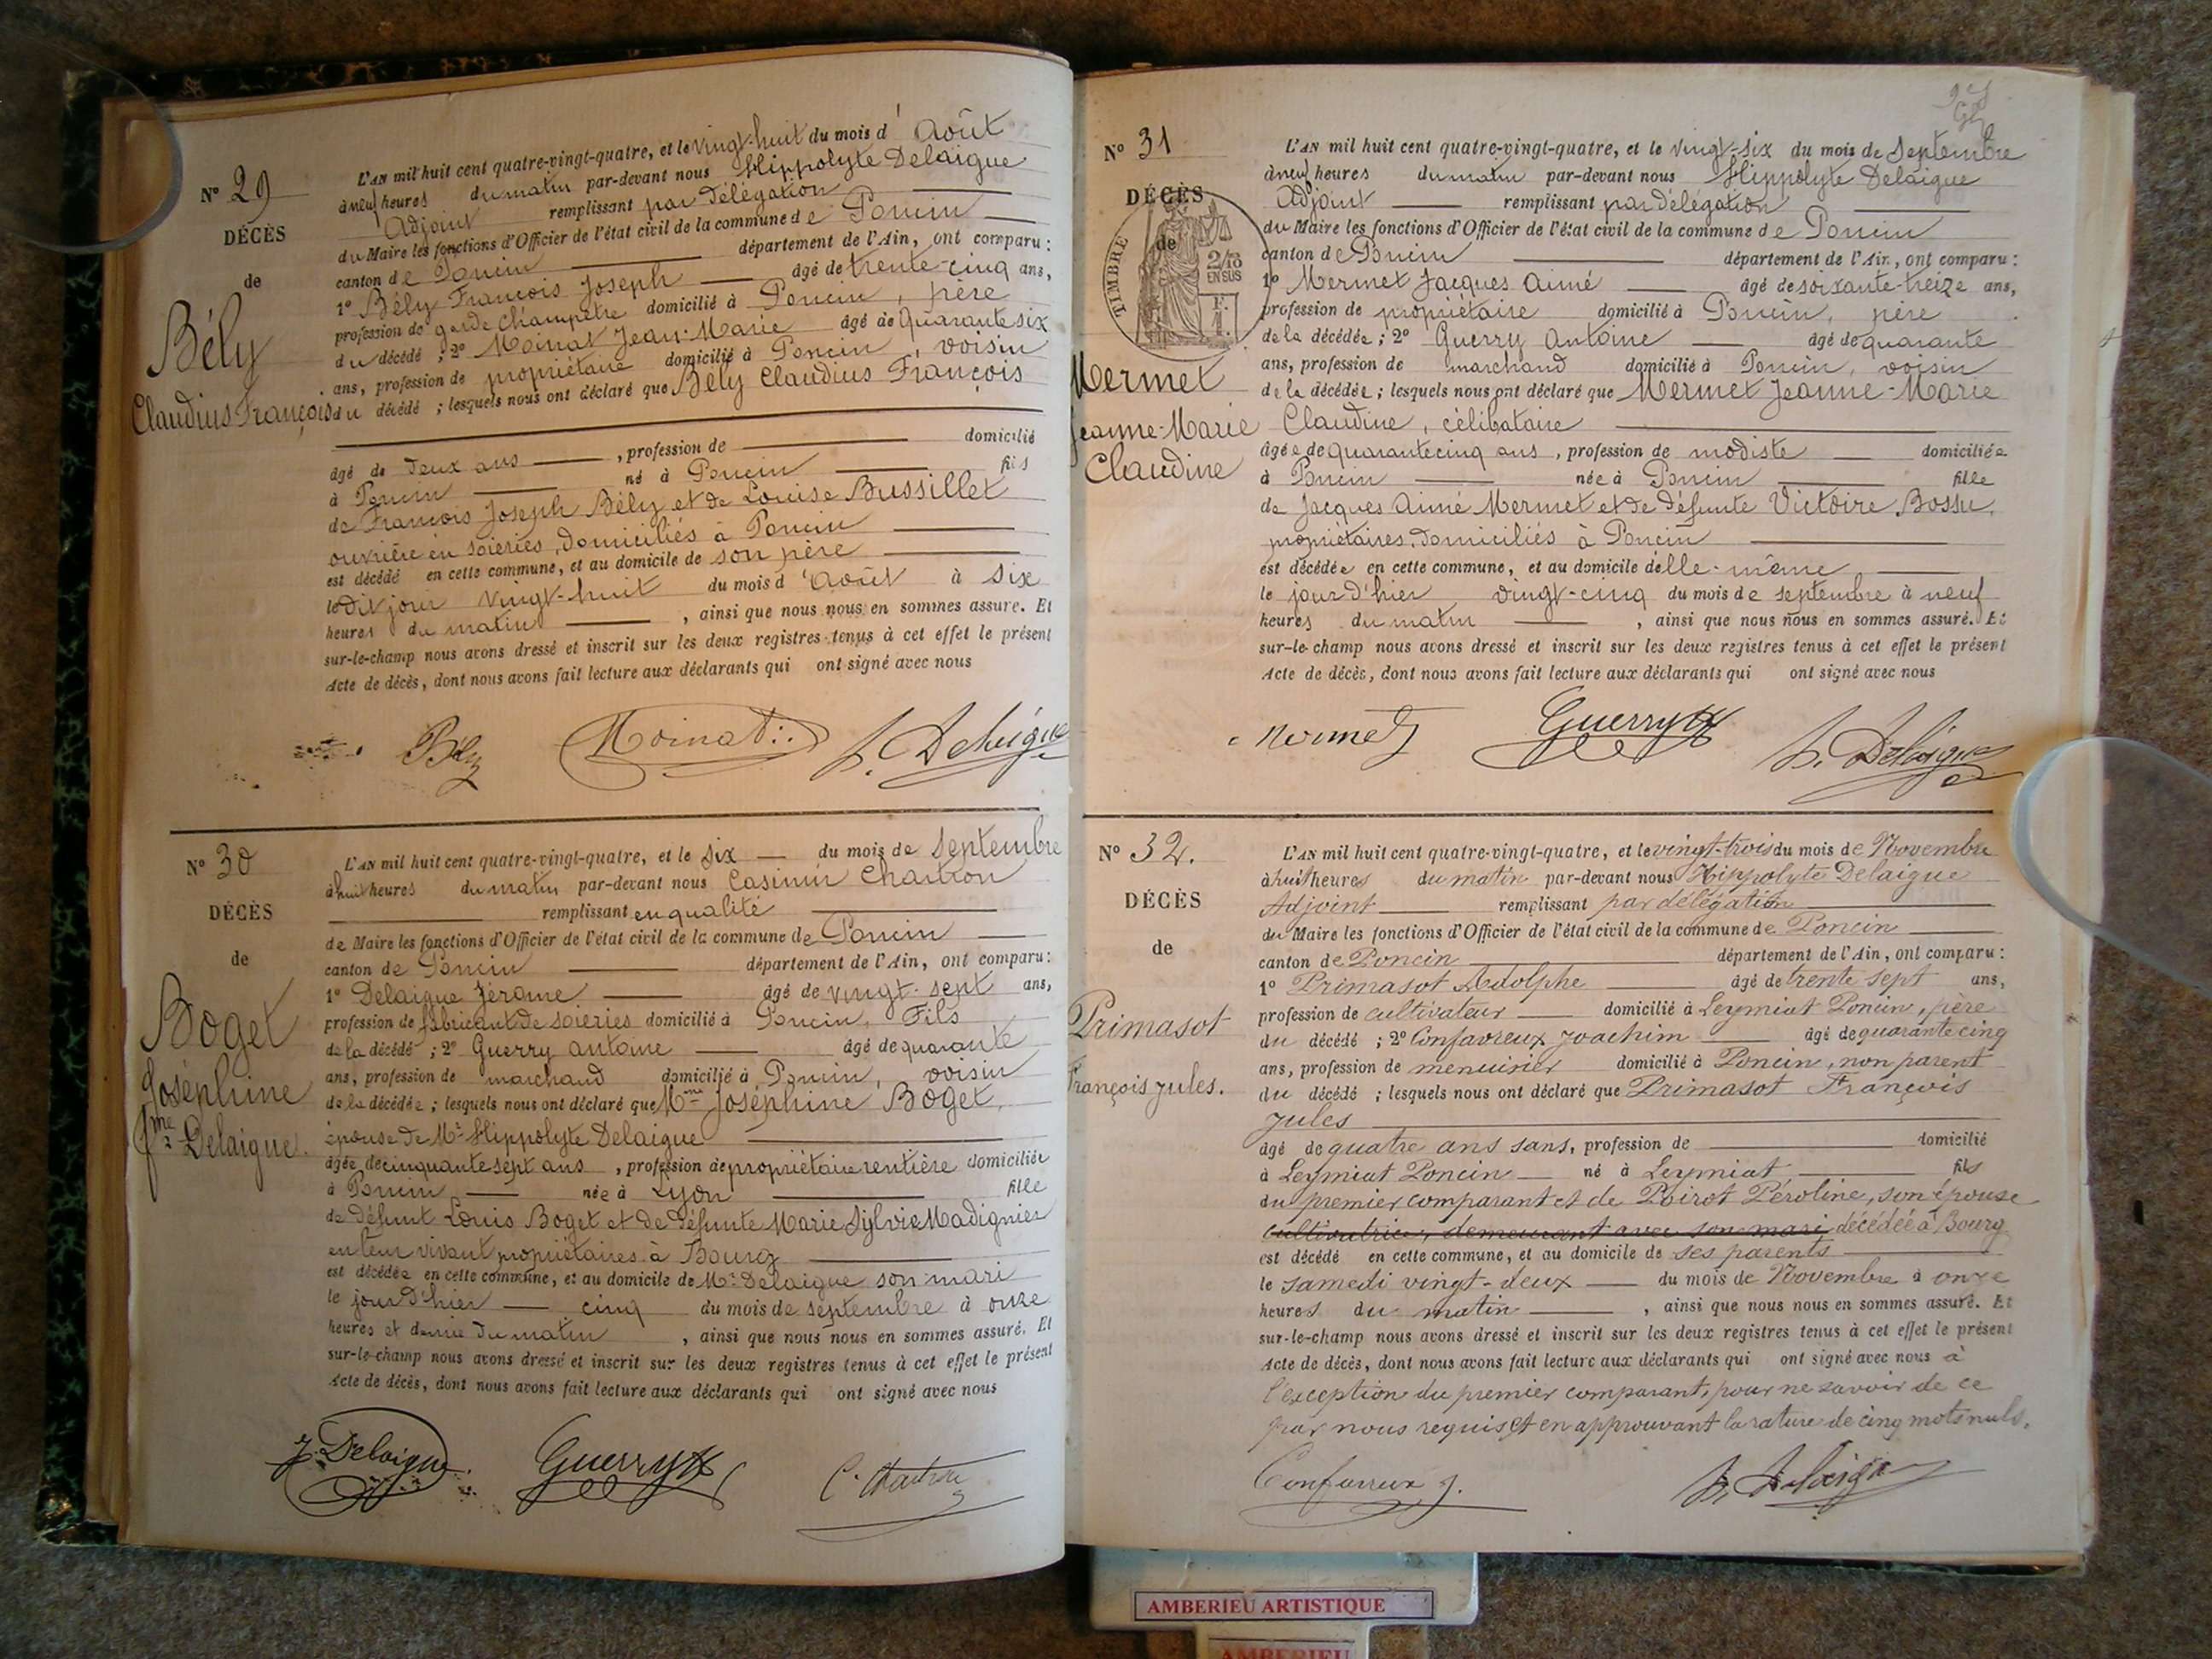 N° 29
DÉCÈS
de
Bély
Claudius François
L'AN mil huit cent quatre-vingt-quatre, et le vingt-huit du mois d'Août
à neuf heures du matin par-devant nous Hippolyte Delaigue
Adjoint remplissant par délégation
du Maire les fonctions d'Officier de l'état civil de la commune de Poncin
canton de Poncin département de l'Ain, ont comparu :
1° Bély François Joseph âgé de trente-cinq ans,
profession de garde champêtre domicilié à Poncin, père
du décédé ; 2° Moinat Jean-Marie âgé de quarante six
ans, profession de propriétaire domicilié à Poncin, voisin
du décédé ; lesquels nous ont déclaré que Bély Claudius François
âgé de deux ans , profession de domicilié
à Poncin né à Poncin fils
de François Joseph Bély et de Louise Bussillet
ouvrière en soieries, domiciliés à Poncin
est décédé en cette commune, et au domicile de son père
le dit jour vingt-huit du mois d'août à six
heures du matin , ainsi que nous nous en sommes assuré. Et
sur-le-champ nous avons dressé et inscrit sur les deux registres tenus à cet effet le présent
Acte de décès, dont nous avons fait lecture aux déclarants qui ont signé avec nous
Bély Moinat H. Delaigue
N° 30
DÉCÈS
de
Boget
Joséphine
fme Delaigue.
L'AN mil huit cent quatre-vingt-quatre, et le six du mois de Septembre
à huit heures du matin par-devant nous Casimir Chanron
remplissant en qualité
de Maire les fonctions d'Officier de l'état civil de la commune de Poncin
canton de Poncin département de l'Ain, ont comparu :
1° Delaigue Jérôme âgé de vingt-sept ans,
profession de fabricant de soieries domicilié à Poncin, Fils
de la décédé ; 2° Guerry Antoine âgé de quarante
ans, profession de marchand domicilié à Poncin, voisin
de la décédée ; lesquels nous ont déclaré que Mme Joséphine Boget,
épouse de Mr Hippolyte Delaigue
âgée de cinquante sept ans , profession de propriétaire rentière domiciliée
à Poncin née à Lyon fille
de défunt Louis Boget et de défunte Marie Sylvie Madignier
en leur vivant propriétaires à Bourg
est décédée en cette commune, et au domicile de Mr Delaigue son mari
le jour d'hier cinq du mois de septembre à onze
heures et demie du matin , ainsi que nous nous en sommes assuré. Et
sur-le-champ nous avons dressé et inscrit sur les deux registres tenus à cet effet le présent
Acte de décès, dont nous avons fait lecture aux déclarants qui ont signé avec nous
J. Delaigue Guerry A
N° 31
DÉCÈS
de
TIMBRE
2/10
EN SUS
Mermet
Jeanne-Marie
Claudine
L'AN mil huit cent quatre-vingt-quatre, et le vingt-six du mois de Septembre
à neuf heures du matin par-devant nous Hippolyte Delaigue
Adjoint remplissant par délégation
du Maire les fonctions d'Officier de l'état civil de la commune de Poncin
canton de Poncin département de l'Ain, ont comparu :
1° Mermet Jacques Aimé âgé de soixante-treize ans,
profession de propriétaire domicilié à Poncin, père
de la décédée ; 2° Guerry Antoine âgé de quarante
ans, profession de marchand domicilié à Poncin, voisin
de la décédée ; lesquels nous ont déclaré que Mermet Jeanne-Marie
Claudine, célibataire
âgée de quarante cinq ans , profession de modiste domiciliée
à Poncin née à Poncin fille
de Jacques Aimé Mermet et de défunte Victoire Bossu,
propriétaires, domiciliés à Poncin
est décédée en cette commune, et au domicile d'elle-même
le jour d'hier vingt-cinq du mois de septembre à neuf
heures du matin , ainsi que nous nous en sommes assuré. Et
sur-le-champ nous avons dressé et inscrit sur les deux registres tenus à cet effet le présent
Acte de décès, dont nous avons fait lecture aux déclarants qui ont signé avec nous
Mermet Guerry A H. Delaigue
N° 32.
DÉCÈS
de
Primasot
François Jules.
L'AN mil huit cent quatre-vingt-quatre, et le vingt-trois du mois de Novembre
à huit heures du matin par-devant nous Hippolyte Delaigue
Adjoint remplissant par délégation
du Maire les fonctions d'Officier de l'état civil de la commune de Poncin
canton de Poncin département de l'Ain, ont comparu :
1° Primasot Adolphe âgé de trente sept ans,
profession de cultivateur domicilié à Leymiat Poncin, père
du décédé ; 2° Confavreux Joachim âgé de quarante cinq
ans, profession de menuisier domicilié à Poncin, non parent
du décédé ; lesquels nous ont déclaré que Primasot François
Jules
âgé de quatre ans sans, profession de domicilié
à Leymiat Poncin né à Leymiat fils
du premier comparant et de Poirot Péroline, son épouse
cultivatrice, demeurant avec son mari, décédée à Bourg
est décédé en cette commune, et au domicile de ses parents
le samedi vingt-deux du mois de Novembre à onze
heures du matin , ainsi que nous nous en sommes assuré. Et
sur-le-champ nous avons dressé et inscrit sur les deux registres tenus à cet effet le présent
Acte de décès, dont nous avons fait lecture aux déclarants qui ont signé avec nous à
l'exception du premier comparant, pour ne savoir de ce
par nous requis et en approuvant la rature de cinq mots nuls.
Confavreux J. H. Delaigue
AMBERIEU ARTISTIQUE
AMBERIEU